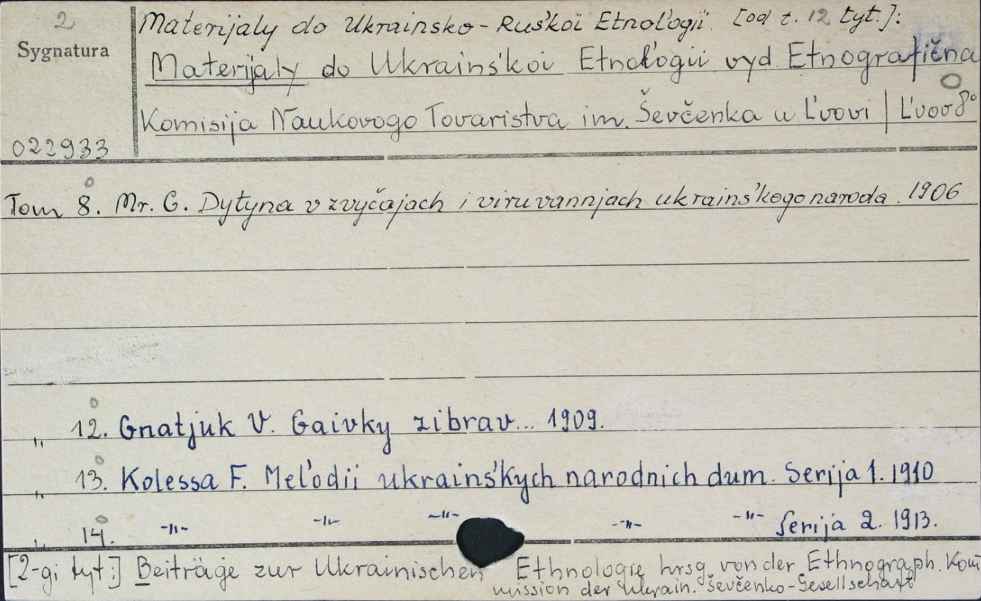 2
Sygnatura
022933
Materijaly do Ukrainsko-Ruśkoi Etnol'ogii [od t. 12 tyt.]:
Materijaly do Ukrainśkoi Etnol'ogii vyd Etnografična
Komisija Naukovogo Tovaristva im. Ševčenka u L'vovi | L'vov 8°
Tom 8. Mr. G. Dytyna v zvyčajach i viruvannjach ukrainśkogo naroda. 1906
„ 12. Gnatjuk V. Gaivky zibrav... 1909.
„ 13. Kolessa F. Mel'odii ukrainśkych narodnich dum. Serija 1. 1910
„ 14. -"- -"- -"- -"- -"- Serija 2. 1913.
[2-gi tyt:] Beiträge zur Ukrainischen Ethnologie hrsg. von der Ethnograph. Kom
mission der Ukrain. Ševčenko-Gesellschaft